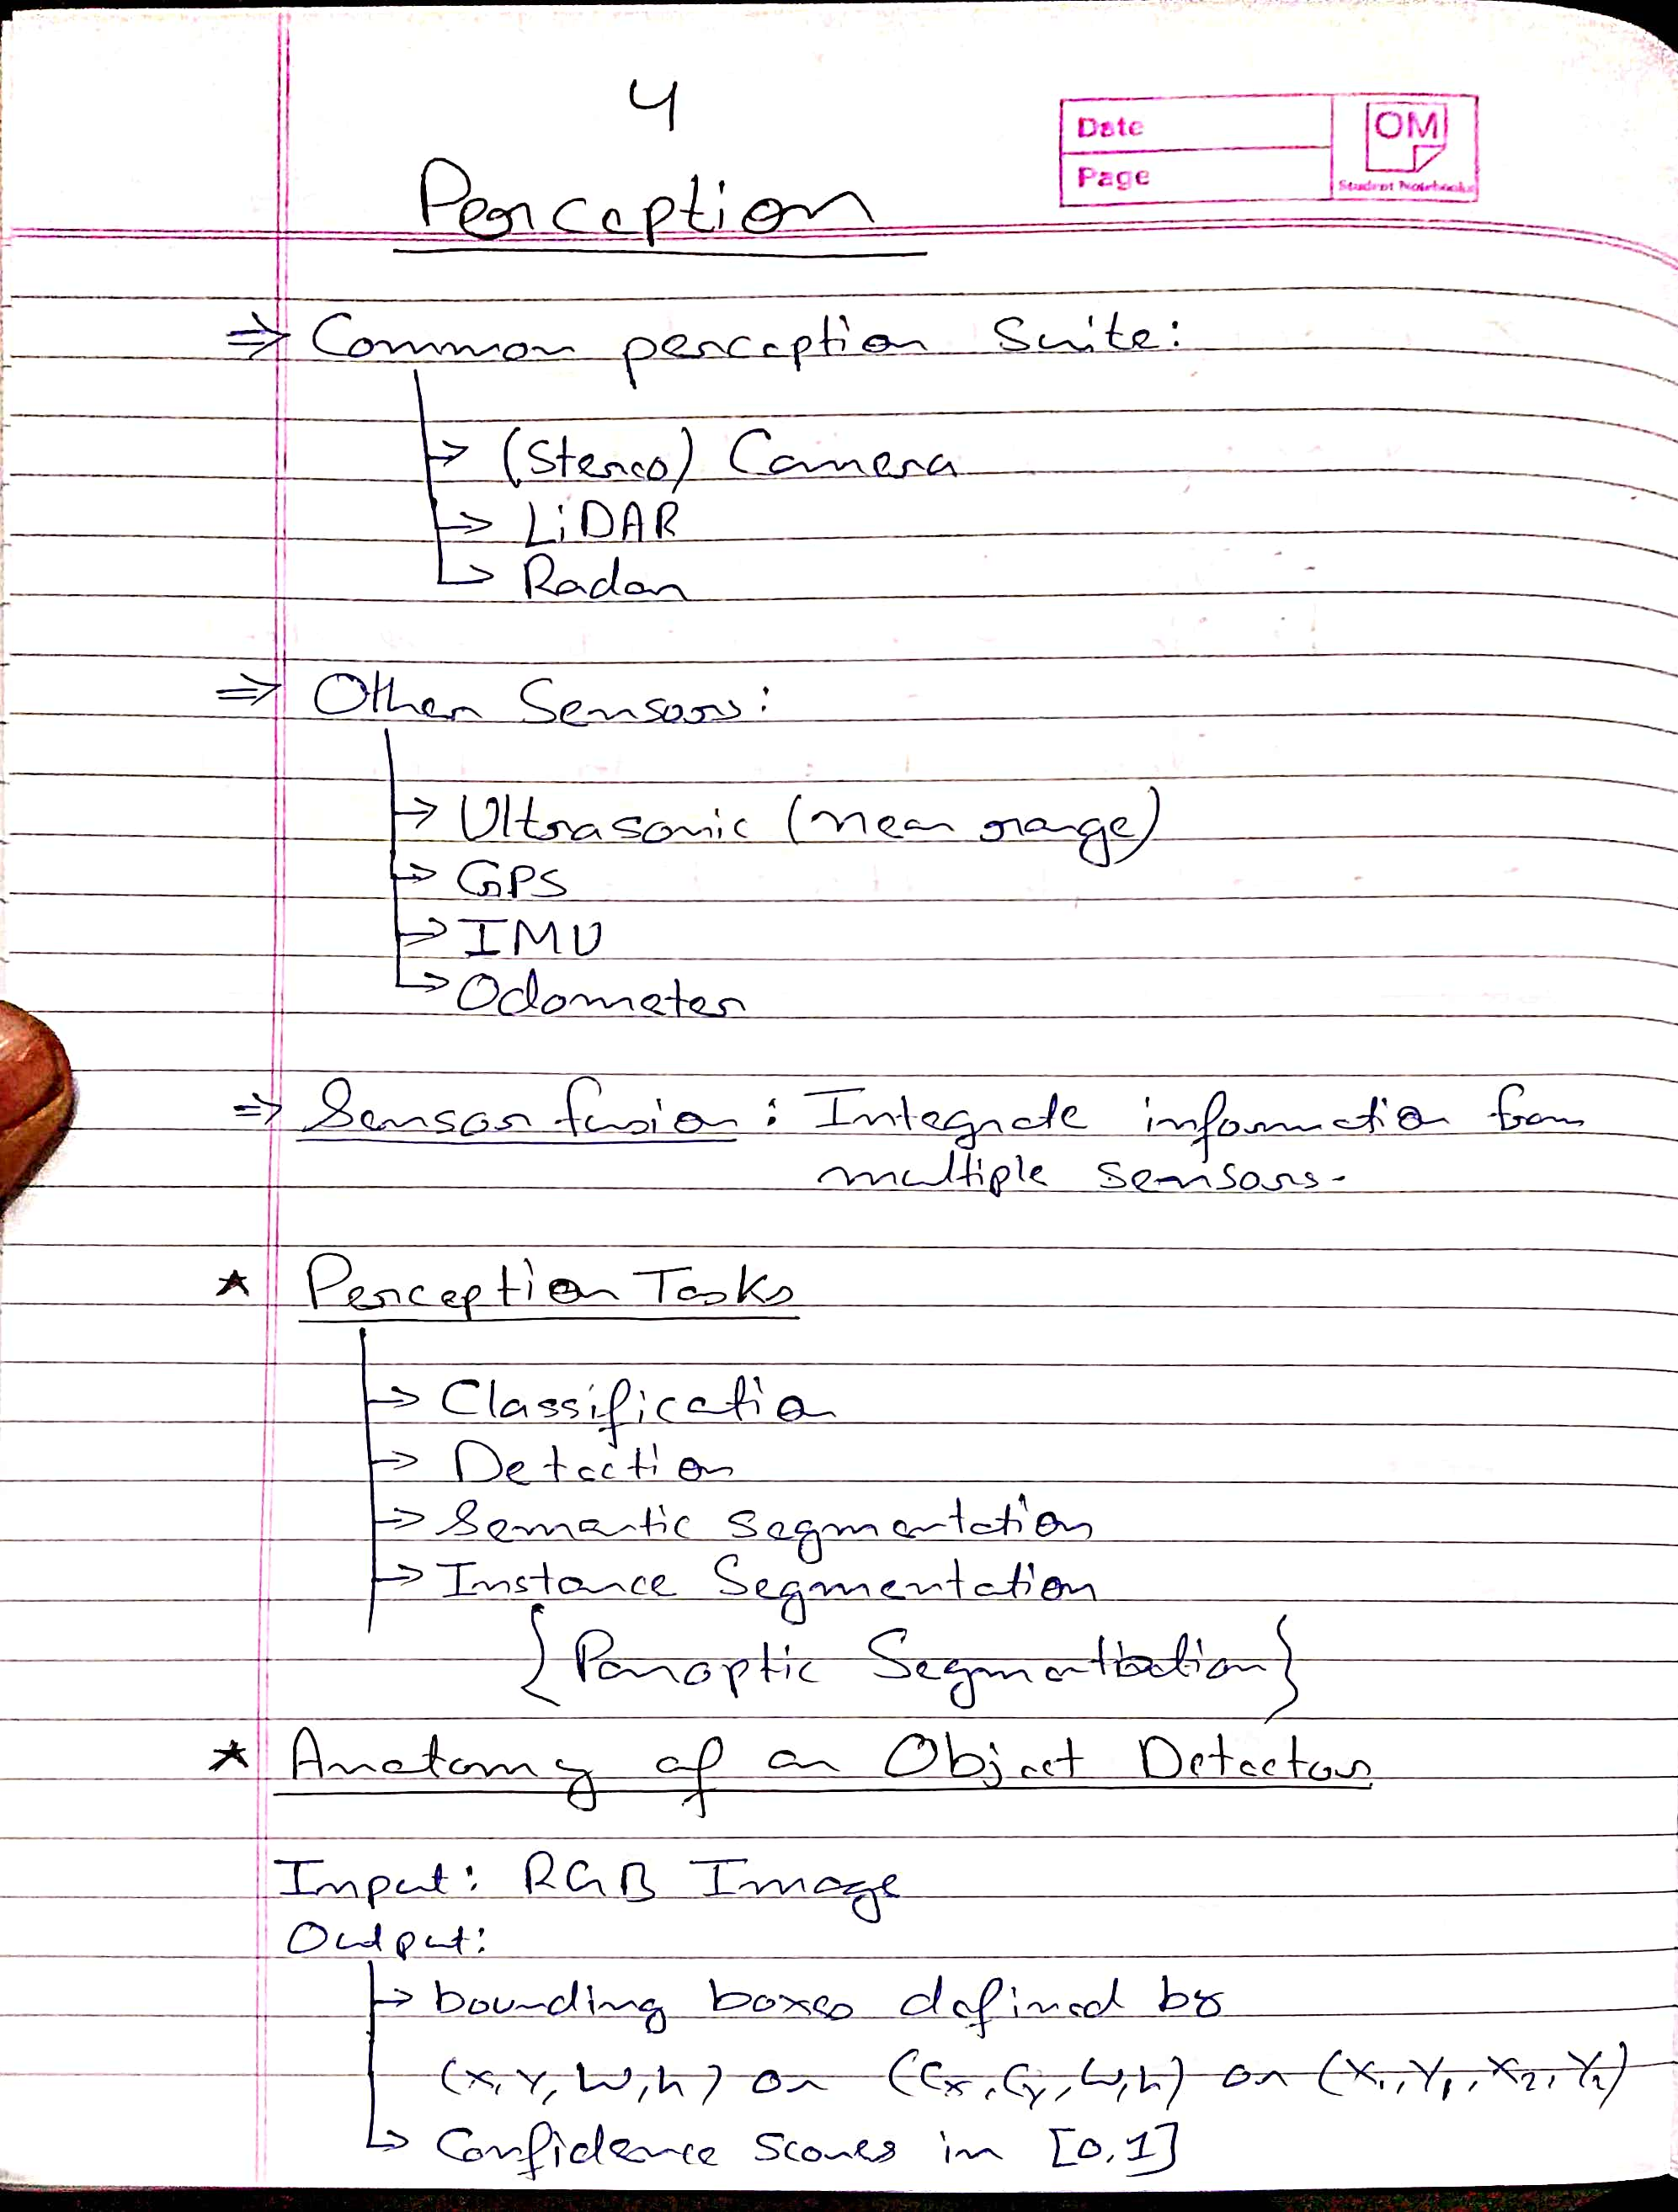 4
Date
OM
Page
Student Notebooks
Perception
⇒ Common perception Suite:
→ (Stereo) Camera
→ LiDAR
→ Radar
⇒ Other Sensors:
→ Ultrasonic (near range)
→ GPS
→ IMU
→ Odometer
⇒ Sensor fusion: Integrate information from
multiple sensors.
★ Perception Tasks
→ Classification
→ Detection
→ Semantic segmentation
→ Instance Segmentation
{Panoptic Segmentation}
★ Anatomy of an Object Detector
Input: RGB Image
Output:
→ bounding boxes defined by
(x, y, w, h) or (Cx, Cy, w, h) or (x1, y1, x2, y2)
→ Confidence scores in [0,1]